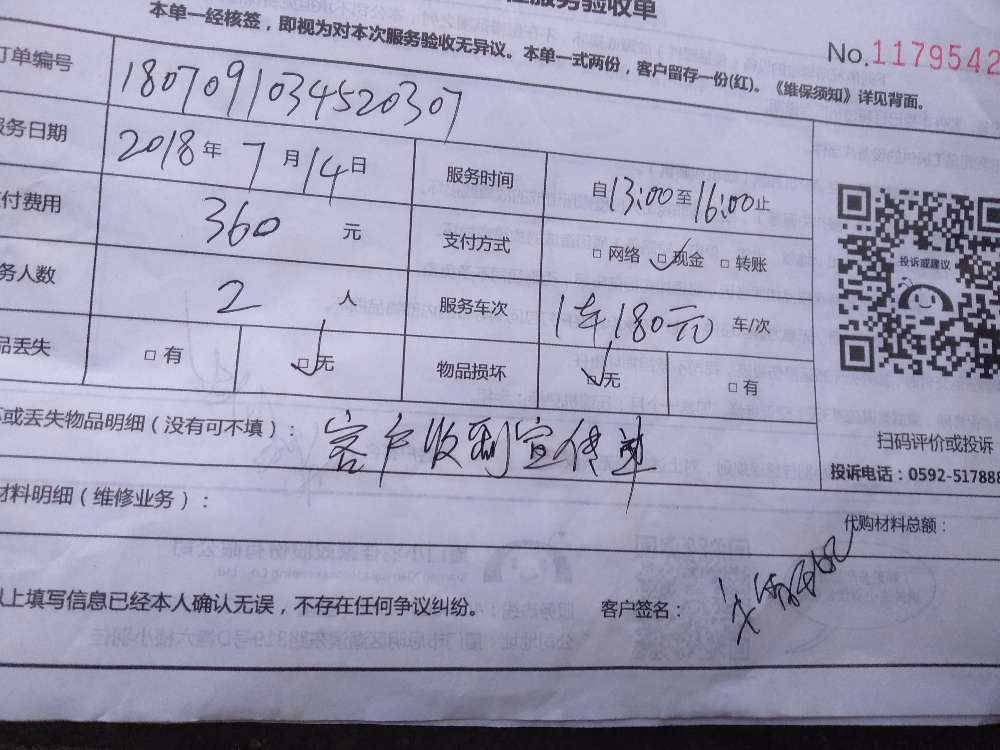 服务验收单
本单一经核签，即视为对本次服务验收无异议。本单一式两份，客户留存一份(红)。《维保须知》详见背面。
No.1179542
订单编号 1807091034520307
服务日期 2018年7月14日 服务时间 自13:00至16:00止
付费用 360元 支付方式 □网络 □现金 □转账
务人数 2人 服务车次 1车180元 车/次
品丢失 □有 □无 物品损坏 □无 □有
投诉或建议
扫码评价或投诉
投诉电话：0592-517888
或丢失物品明细（没有可不填）： 客户收到宣传单
材料明细（维修业务）：
代购材料总额：
以上填写信息已经本人确认无误，不存在任何争议纠纷。 客户签名：